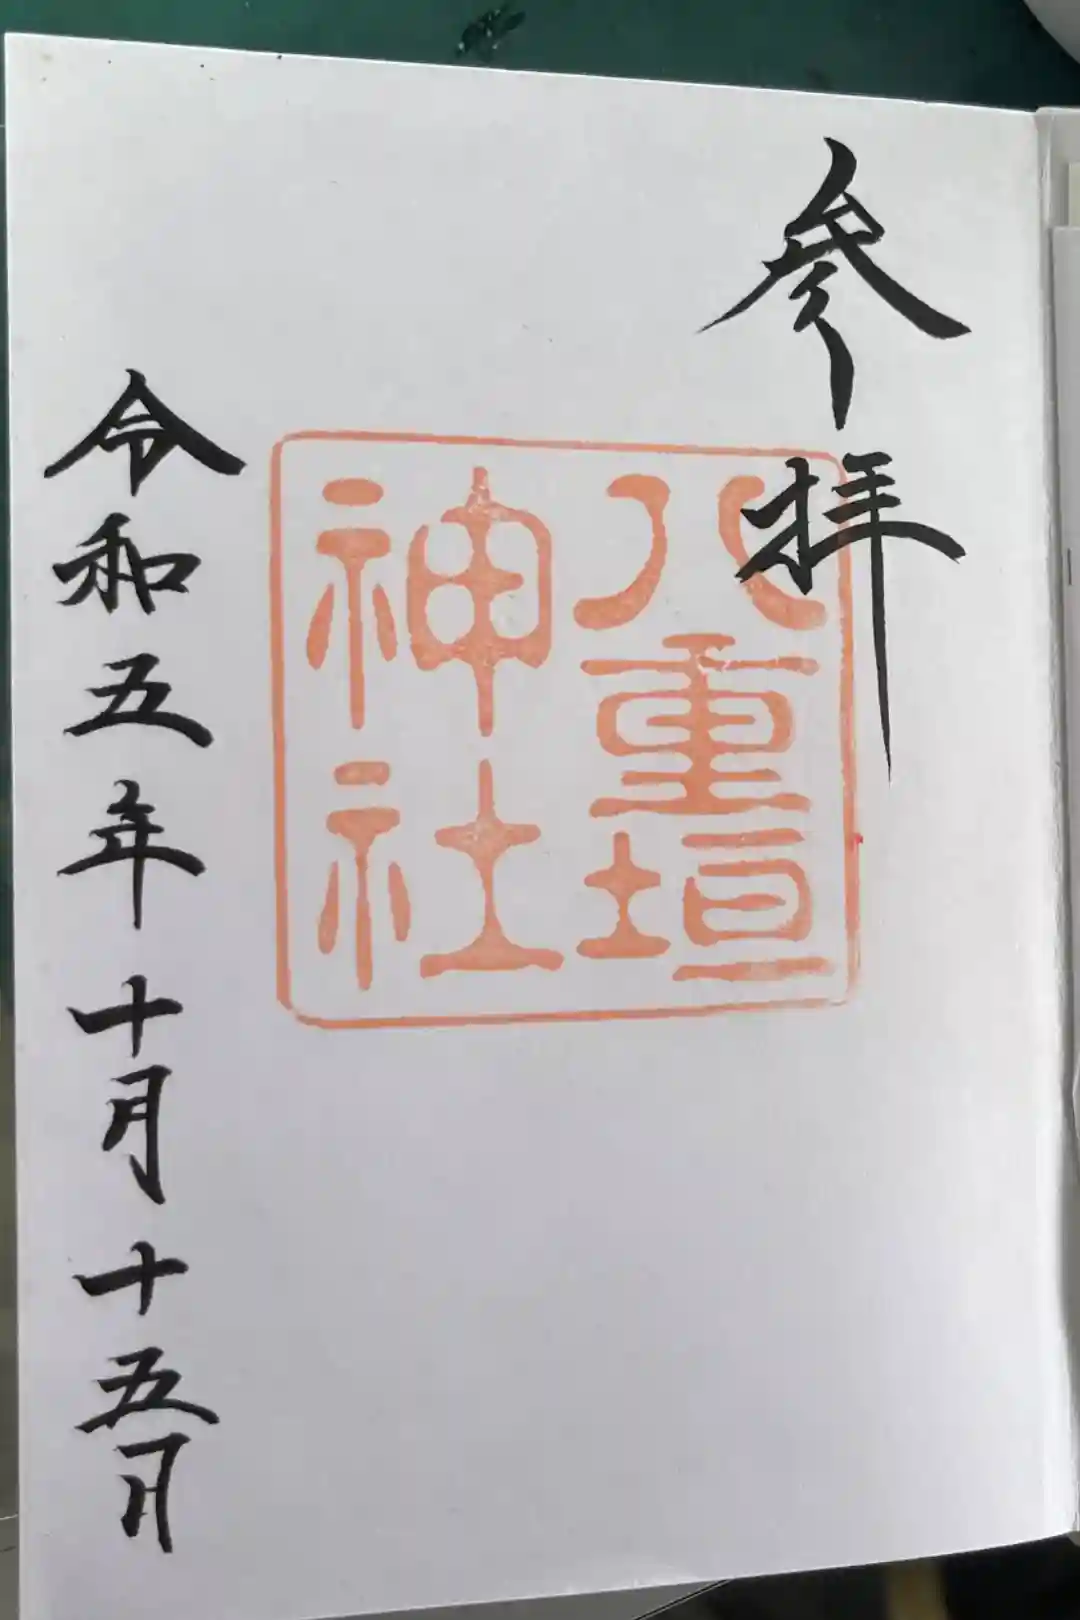 参拝
八重垣
神社
令和五年十月十五日